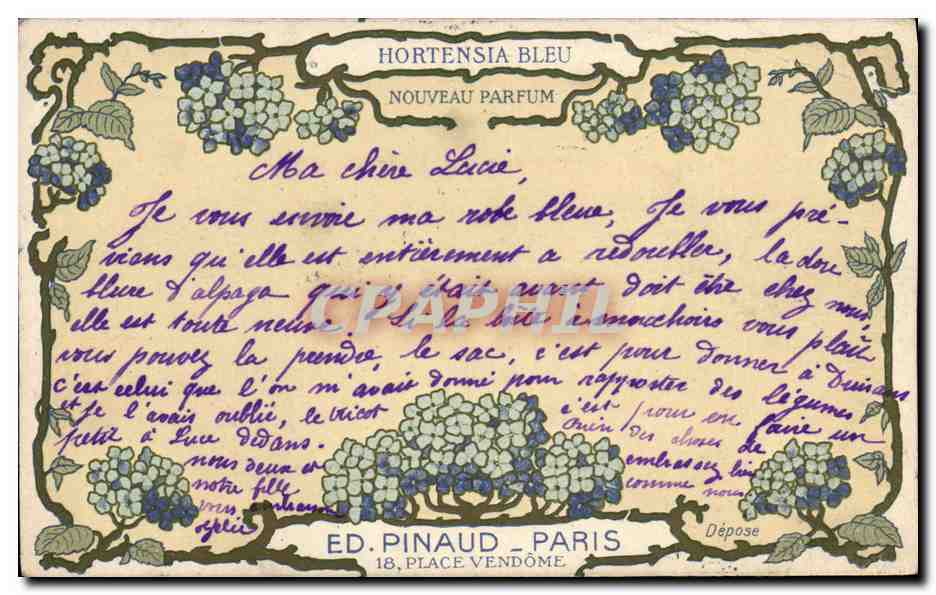 HORTENSIA BLEU
NOUVEAU PARFUM
Ma chère Lucie,
Je vous envoie ma robe bleue, Je vous pré-
viens qu'elle est entièrement a redoubler, la
bleue d'alpaga qui y était avant doit être chez nous,
elle est toute neuve. Si la boite a mouchoirs vous plaît
vous pouvez la prendre, le sac, c'est pour donner à
c'est celui que l'on m'avait donné pour rapporter des légumes
et je l'avais oublié, le tricot c'est pour en faire un
petit à Luce dedans. des choses de
nous deux et embrassez bien
notre fille comme nous
vous
ED. PINAUD _ PARIS
18, PLACE VENDÔME
Dépose
CPAPHIL